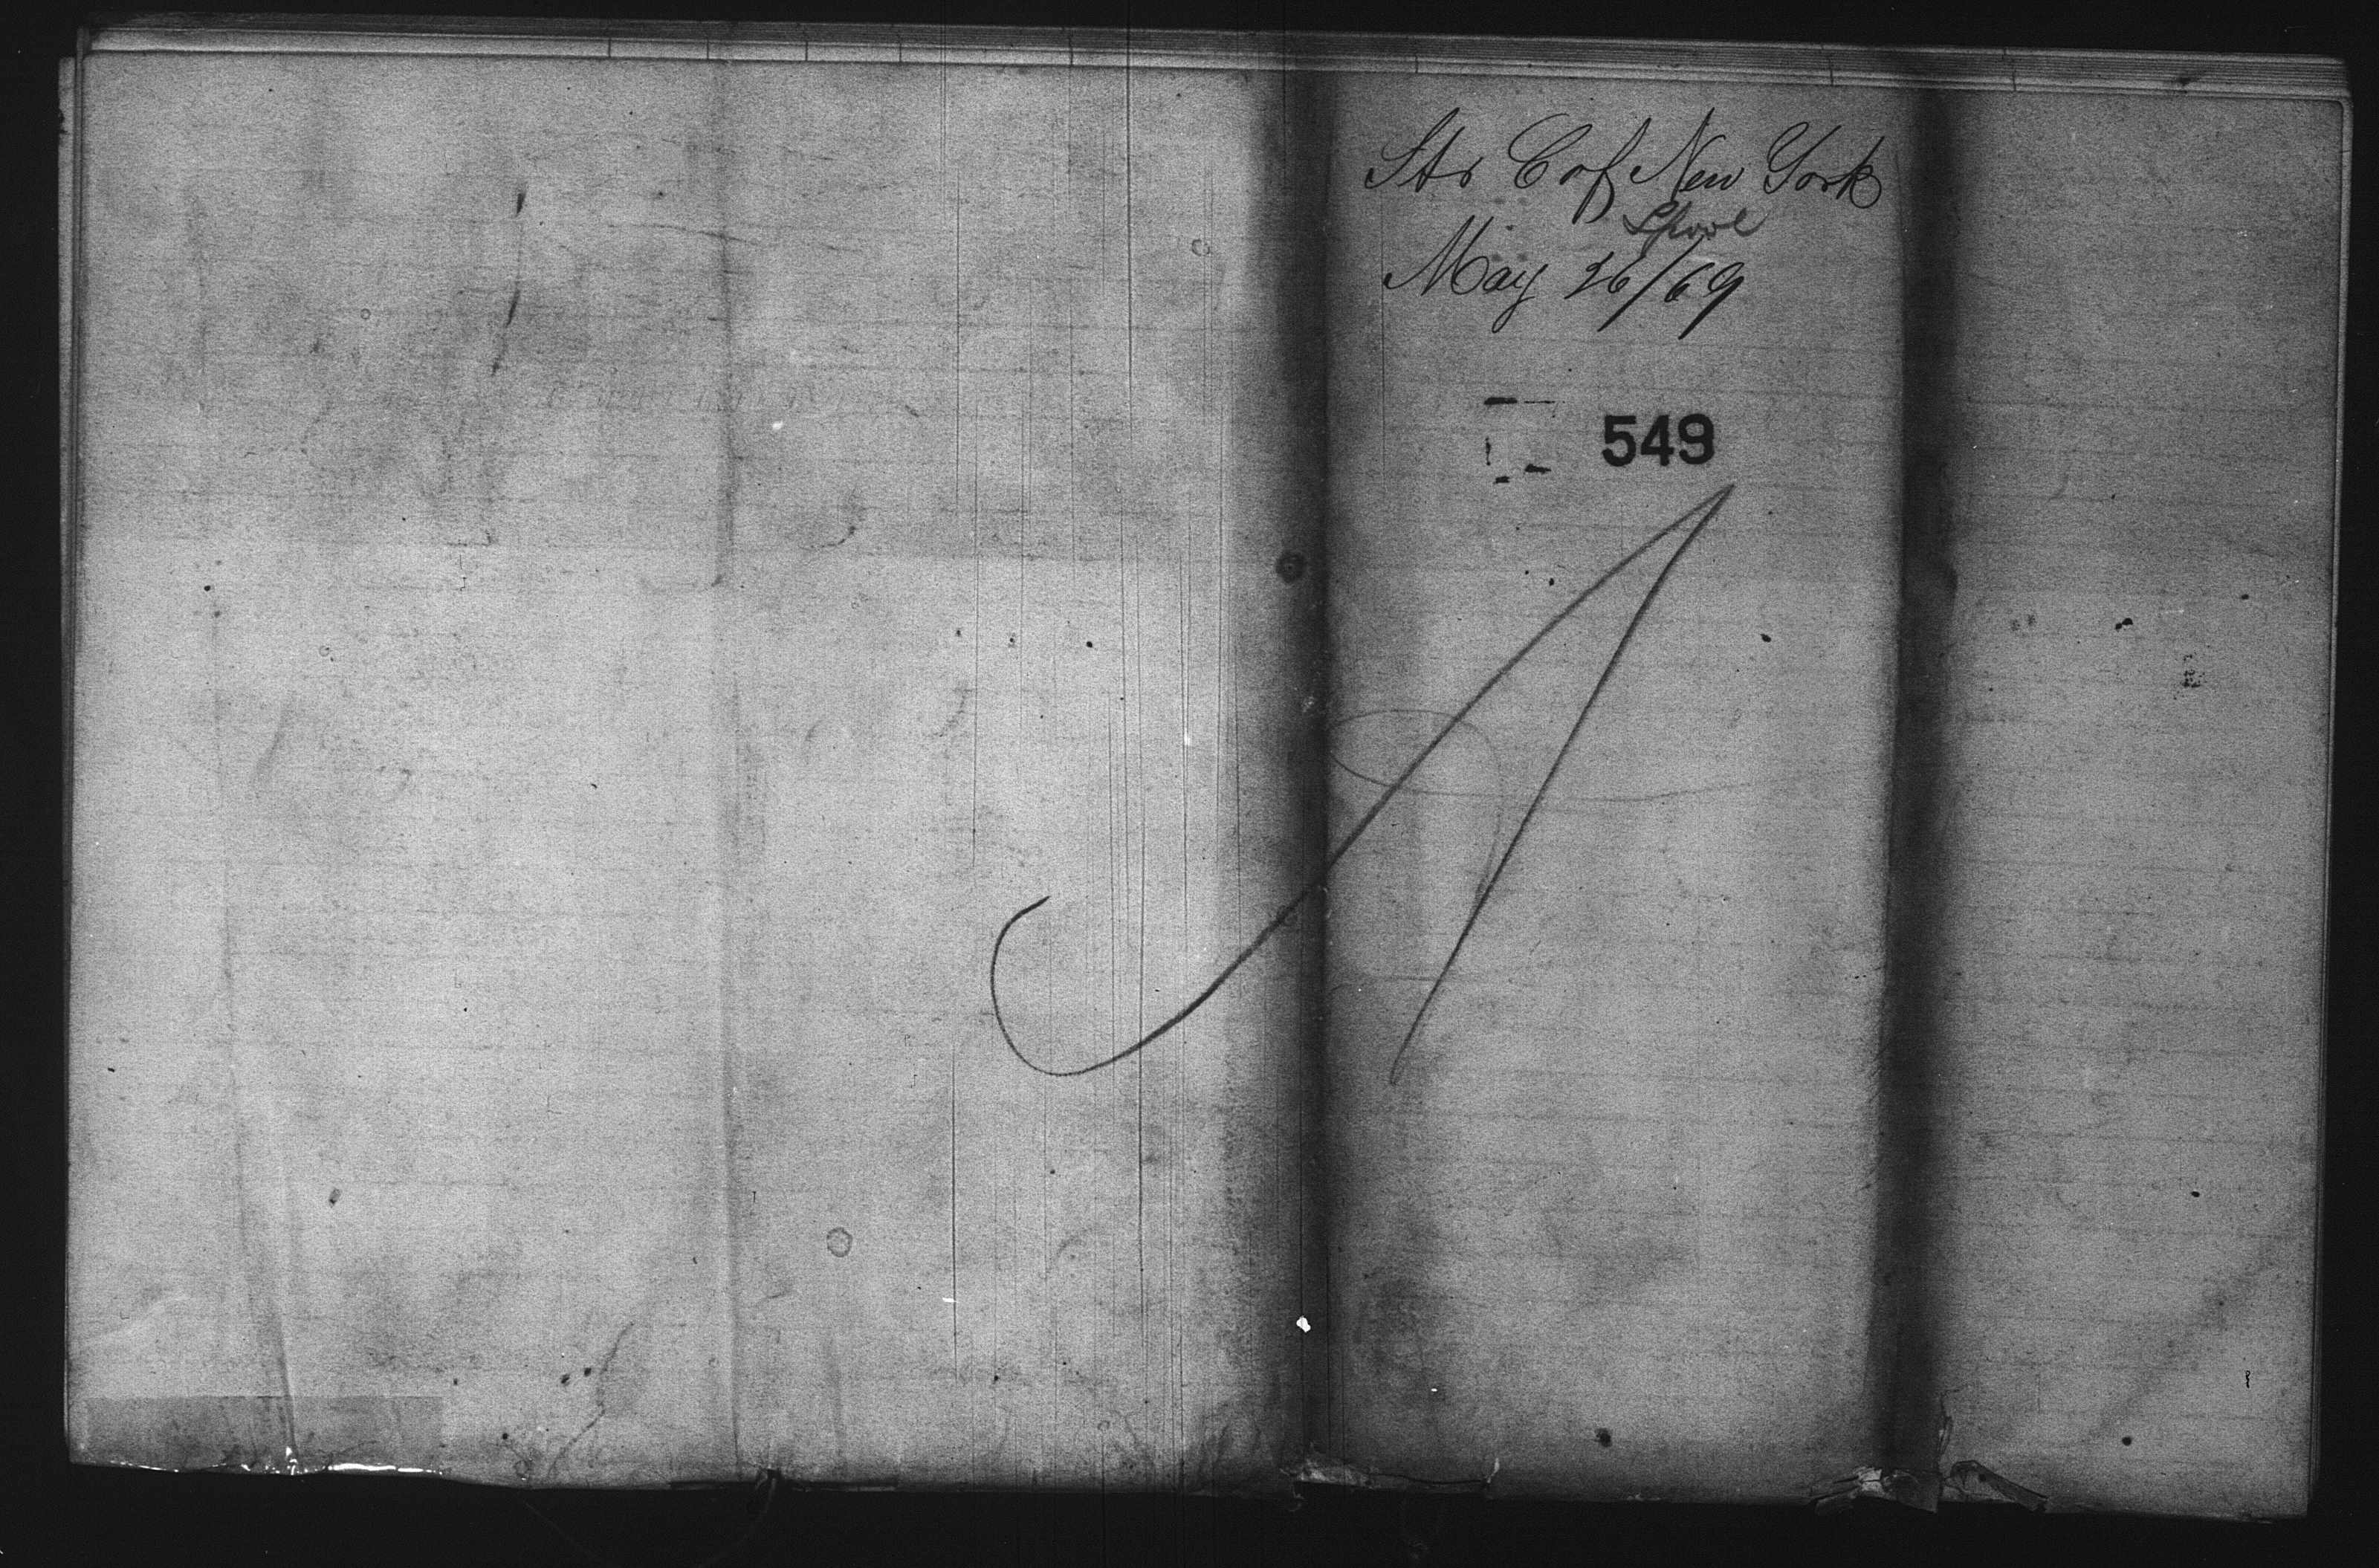 Str C of New York
Lpool
May 26/69
549